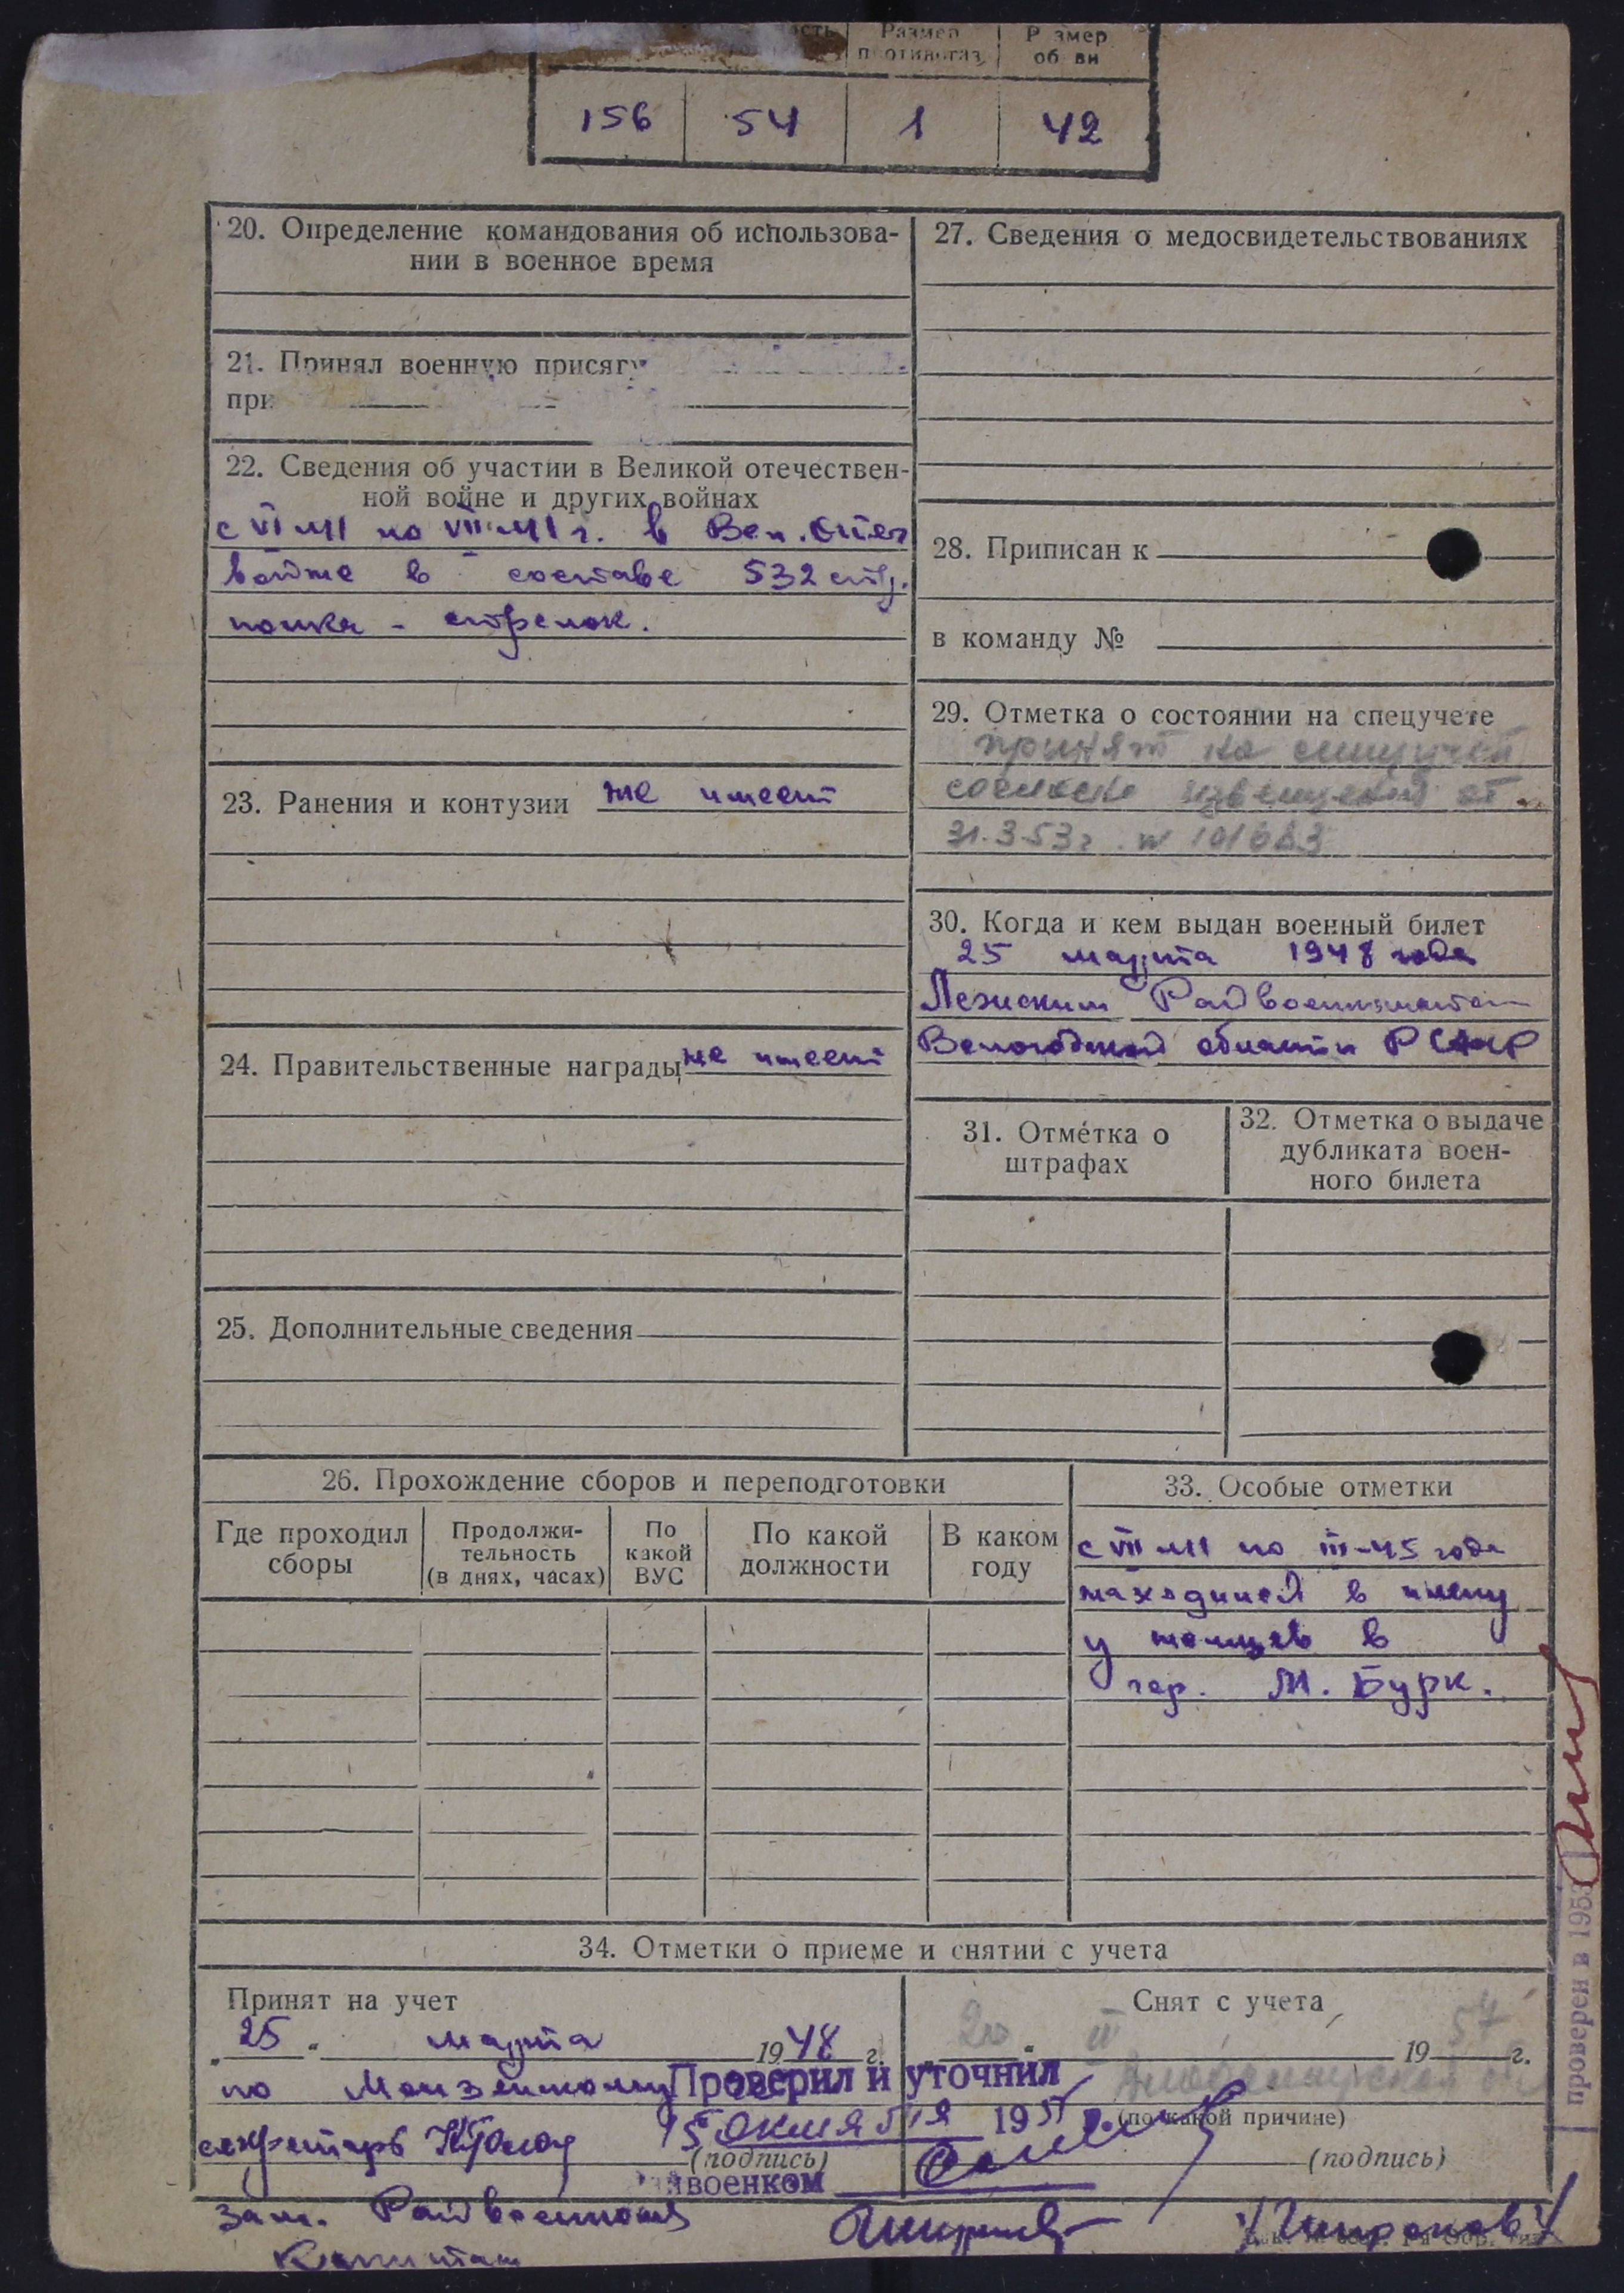 ость
Размер
противогаз
Р змер
об ви
156 54 1 42
20. Определение командования об использова-
нии в военное время
21. Принял военную присягу
при
22. Сведения об участии в Великой отечествен-
ной войне и других войнах
с VI-41 по VII-41 г. в Вел. Отеч
войне в составе 532 стр.
полка - стрелок.
23. Ранения и контузии не имеет
24. Правительственные награды не имеет
25. Дополнительные сведения
27. Сведения о медосвидетельствованиях
28. Приписан к
в команду №
29. Отметка о состоянии на спецучете
принят на спецучет
согласно извещения от
31.3.53г. №
30. Когда и кем выдан военный билет
25 марта 1948 года
Лежским Райвоенкоматом
Вологодской области РСФСР
31. Отметка о
штрафах
32. Отметка о выдаче
дубликата воен-
ного билета
26. Прохождение сборов и переподготовки
Где проходил
сборы
Продолжи-
тельность
(в днях, часах)
По
какой
ВУС
По какой
должности
В каком
году
33. Особые отметки
с VII-41 по III-45 года
находился в плену
у немцев в
гор. М. Бурк.
34. Отметки о приеме и снятии с учета
Принят на учет
„25“ марта 1948 г.
по Монзенскому
секретарь
(подпись)
Зам. Райвоенкома
Капитан
Проверил и уточнил
15 октября 195
военком
Снят с учета
20 II 1957 г.
(по какой причине)
(подпись)
проверен в 1953